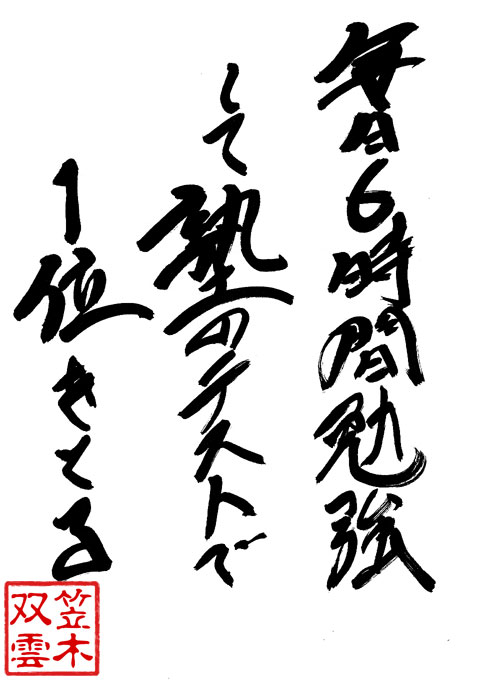 毎日6時間勉強
して塾のテストで
1位をとる
笠木
双雲